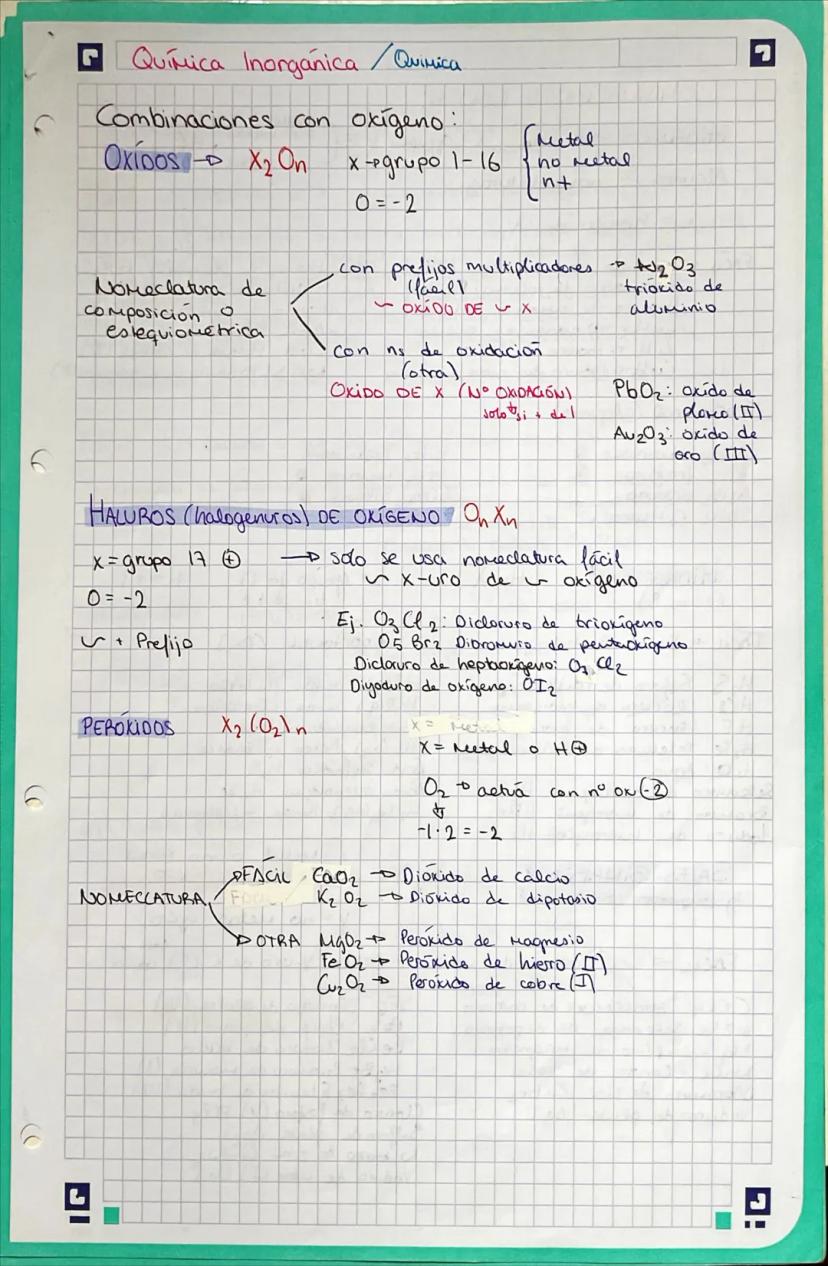 Química Inorgánica / Química
Combinaciones con oxígeno:
OXÍDOS → X₂On x→grupo 1-16 { Metal
no metal
n+
O = -2
Nomeclatura de
composición o
estequiométrica
con prefijos multiplicadores → Al₂O₃
(fácil) trióxido de
~ OXÍDO DE ~ X aluminio
con ns de oxidación
(otra)
OXIDO DE X (Nº OXIDACIÓN)
solo si + de 1
PbO₂: oxído de
plomo (II)
Au₂O₃: oxído de
oro (III)
HALUROS (halogenuros) DE OXÍGENO OnXn
x = grupo 17 ⊕ → solo se usa nomeclatura fácil
~ x-uro de ~ oxígeno
O = -2
~ + Prefijo
Ej. O₃Cl₂: Dicloruro de trioxígeno
O5 Br2 Dibromuro de pentaoxígeno
Dicloruro de heptaoxígeno: O₇Cl₂
Diyoduro de oxígeno: OI₂
PERÓXIDOS X₂(O₂)n
X = Metal o H⊕
O₂ → actúa con nº ox (-2)
↓
-1·2 = -2
NOMECLATURA
FÁCIL CaO₂ → Dióxido de calcio
K₂O₂ → Dióxido de dipotasio
OTRA MgO₂ → Peróxido de magnesio
FeO₂ → Peróxido de hierro (II)
Cu₂O₂ → Peróxido de cobre (I)